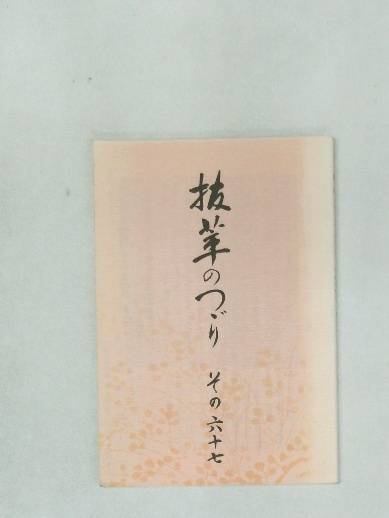 抜萃のつゞり
その六十七